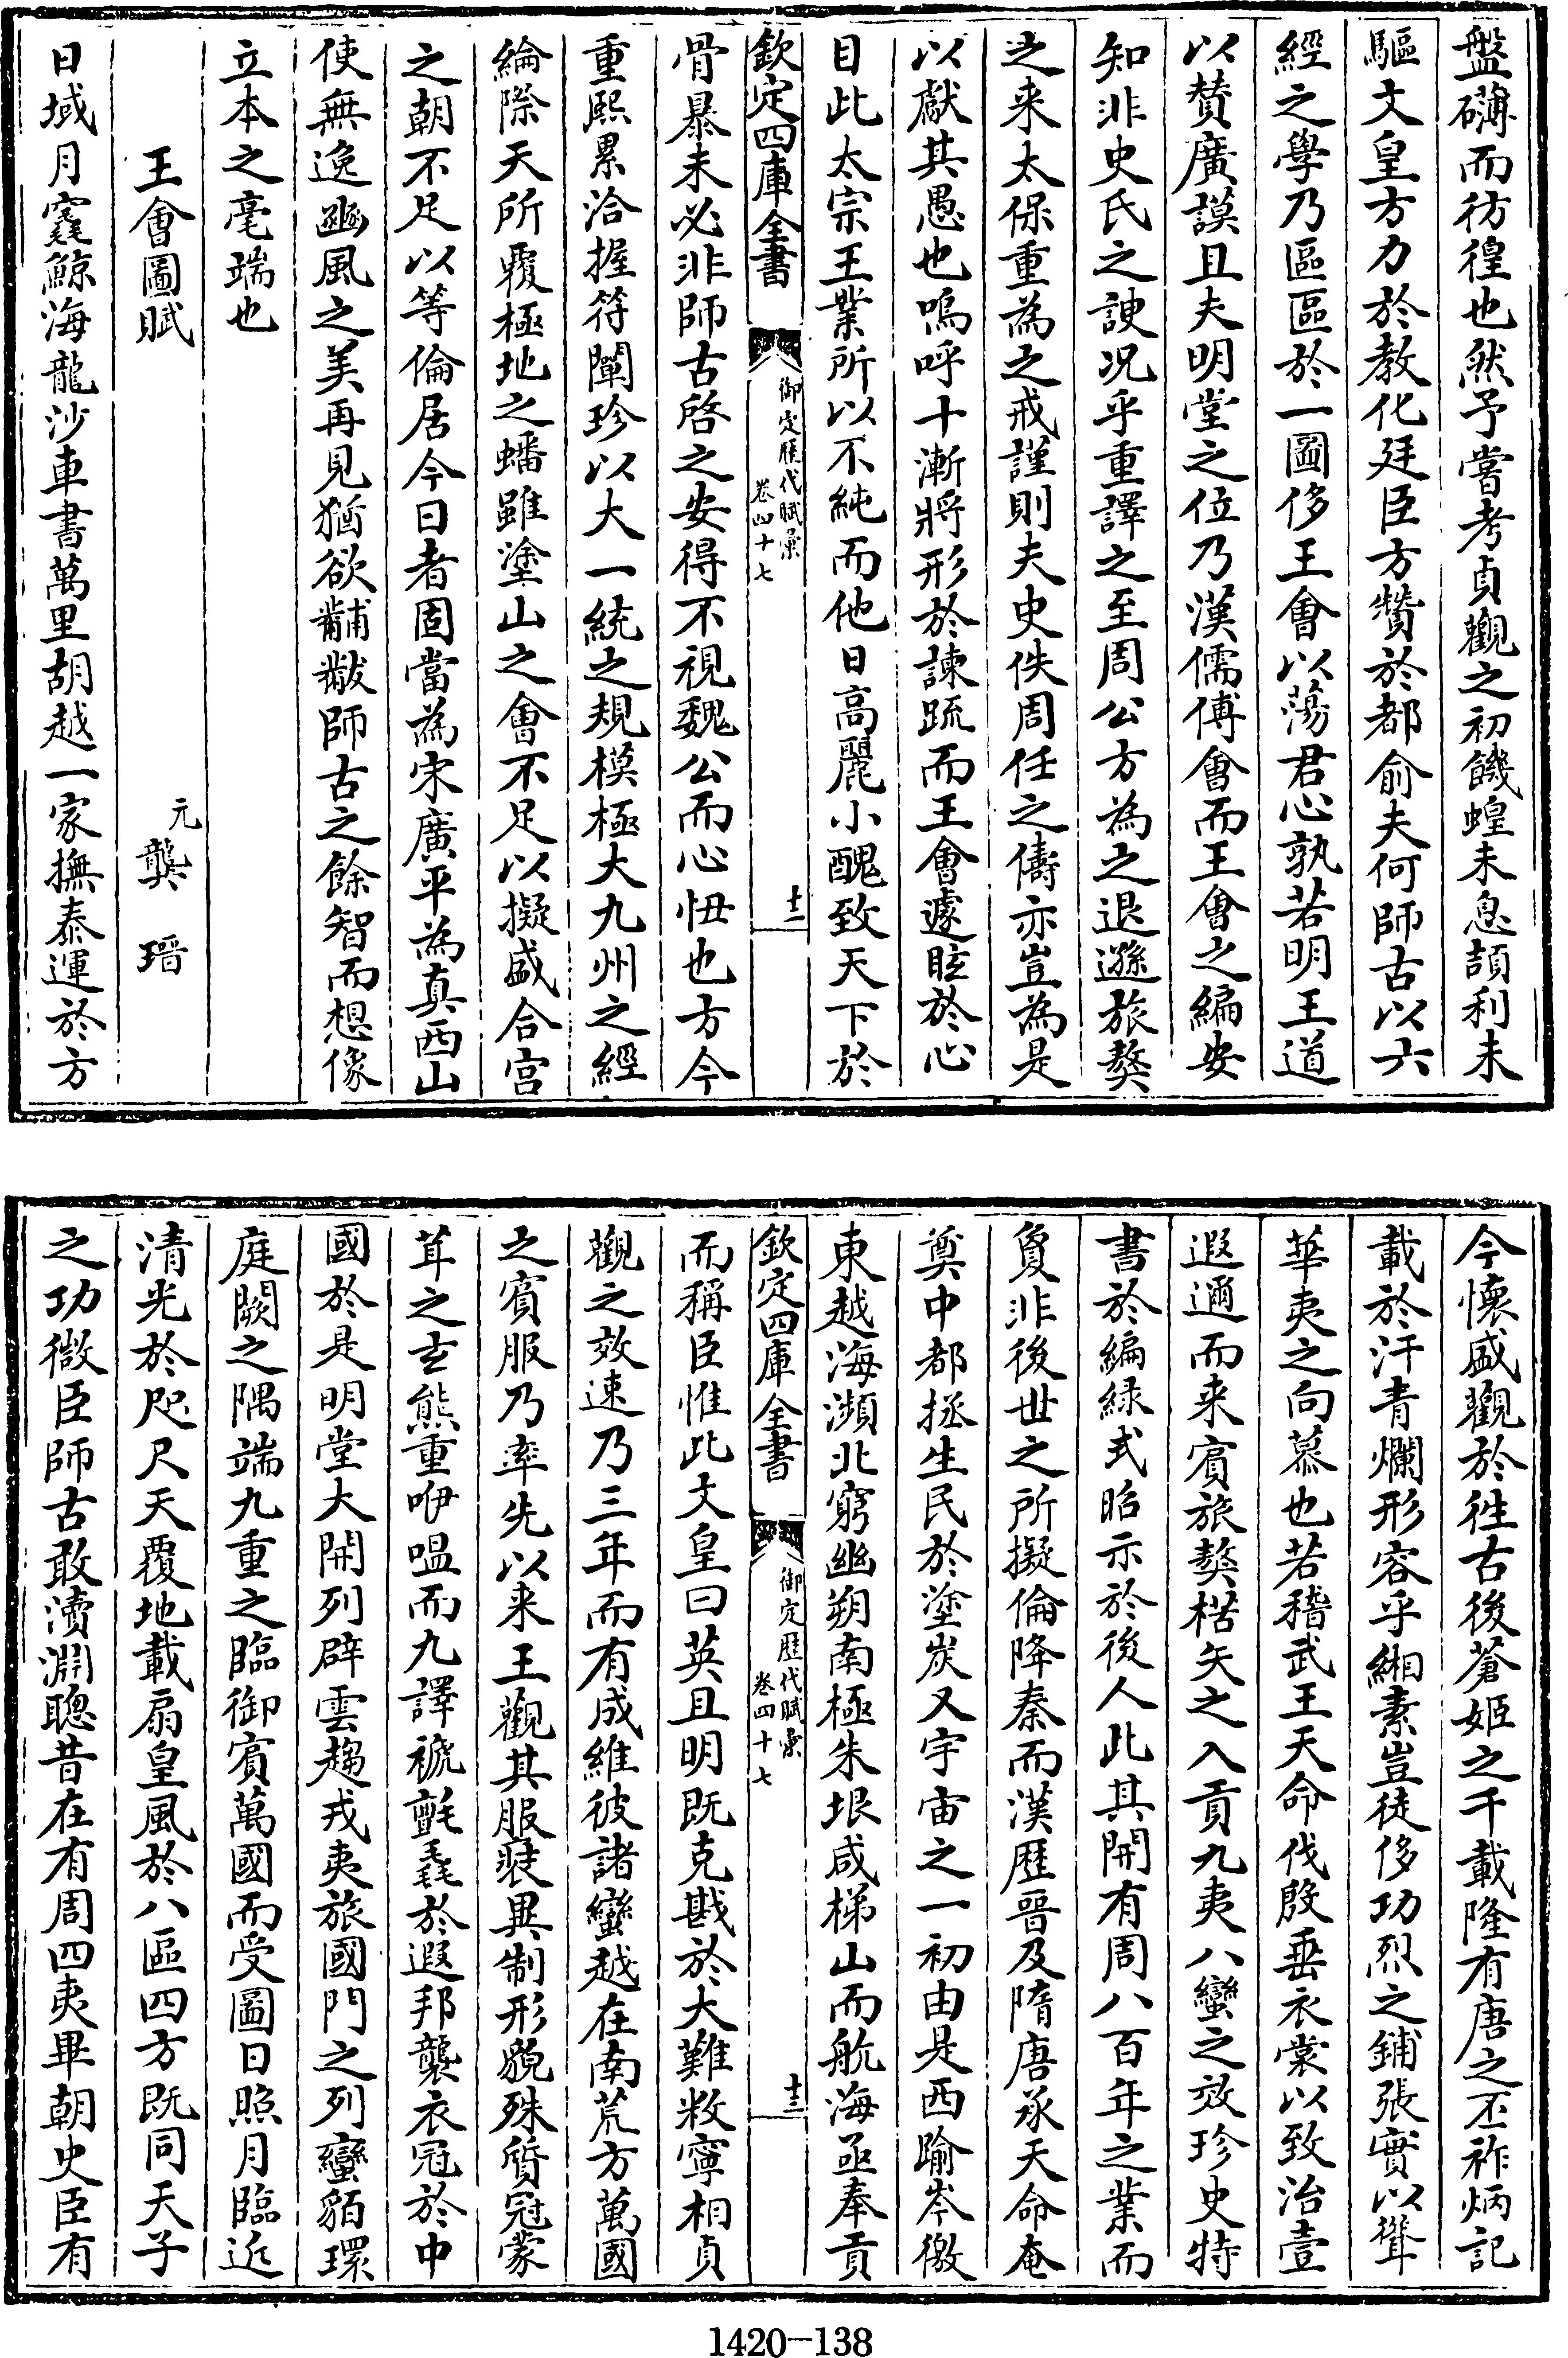 盤礴而彷徨也然予嘗考貞觀之初饑蝗未息頡利未
驅文皇方力於教化廷臣方贊於都俞夫何師古以六
經之學乃區區於一圖侈王會以蕩君心孰若明王道
以賛廣謨且夫明堂之位乃漢儒傅會而王會之編安
知非史氏之諛况乎重譯之至周公方為之退遜旅獒
之来太保重為之戒謹則夫史佚周任之儔亦豈為是
以獻其愚也嗚呼十漸將形於諫疏而王會遽眩於心
目此太宗王業所以不純而他日高麗小醜致天下於
欽定四庫全書
御定歴代賦彙
卷四十七
十二
骨暴未必非師古啓之安得不視魏公而心忸也方今
重熙累洽握符闡珍以大一統之規模極大九州之經
綸際天所覆極地之蟠雖塗山之會不足以擬盛合宫
之朝不足以等倫居今日者固當為宋廣平為真西山
使無逸豳風之美再見猶欲黼黻師古之餘智而想像
立本之毫端也
王會圖賦
元 龔 璛
日域月窟鯨海龍沙車書萬里胡越一家撫泰運於方
今懷盛觀於徃古後蒼姬之千載隆有唐之丕祚炳記
載於汗青爛形容乎緗素豈徒侈功烈之鋪張實以聳
華夷之向慕也若稽武王天命伐殷垂衣裳以致治壹
遐邇而来賓旅獒楛矢之入貢九夷八蠻之效珍史特
書於編緑式昭示於後人此其開有周八百年之業而
敻非後世之所擬倫降秦而漢歴晉及隋唐承天命奄
奠中都拯生民於塗炭又宇宙之一初由是西踰岑徼
東越海瀕北窮幽朔南極朱垠咸梯山而航海亟奉貢
欽定四庫全書
御定歴代賦彙
卷四十七
十三
而稱臣惟此文皇曰英且明既克戡於大難敉寧相貞
觀之效速乃三年而有成維彼諸蠻越在南荒方萬國
之賓服乃率先以来王觀其服裒異制形貌殊質冠蒙
茸之玄熊重咿嗢而九譯褫氈毳於遐邦襲衣冠於中
國於是明堂大開列辟雲趨戎夷旅國門之列蠻貊環
庭闕之隅端九重之臨御賓萬國而受圖日照月臨近
清光於咫尺天覆地載扇皇風於八區四方既同天子
之功微臣師古敢瀆淵聰昔在有周四夷畢朝史臣有
1420-138